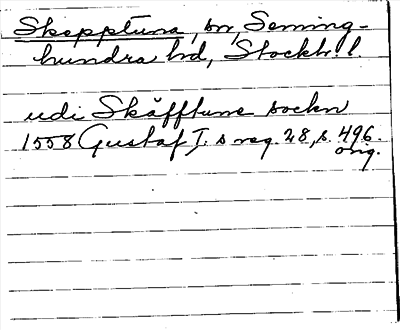 Skepptuna, sn, Seming-
hundra hd, Stockh. l.
udi Skäfftune sockn
1558 Gustaf I. s reg. 28, s. 496.
orig.